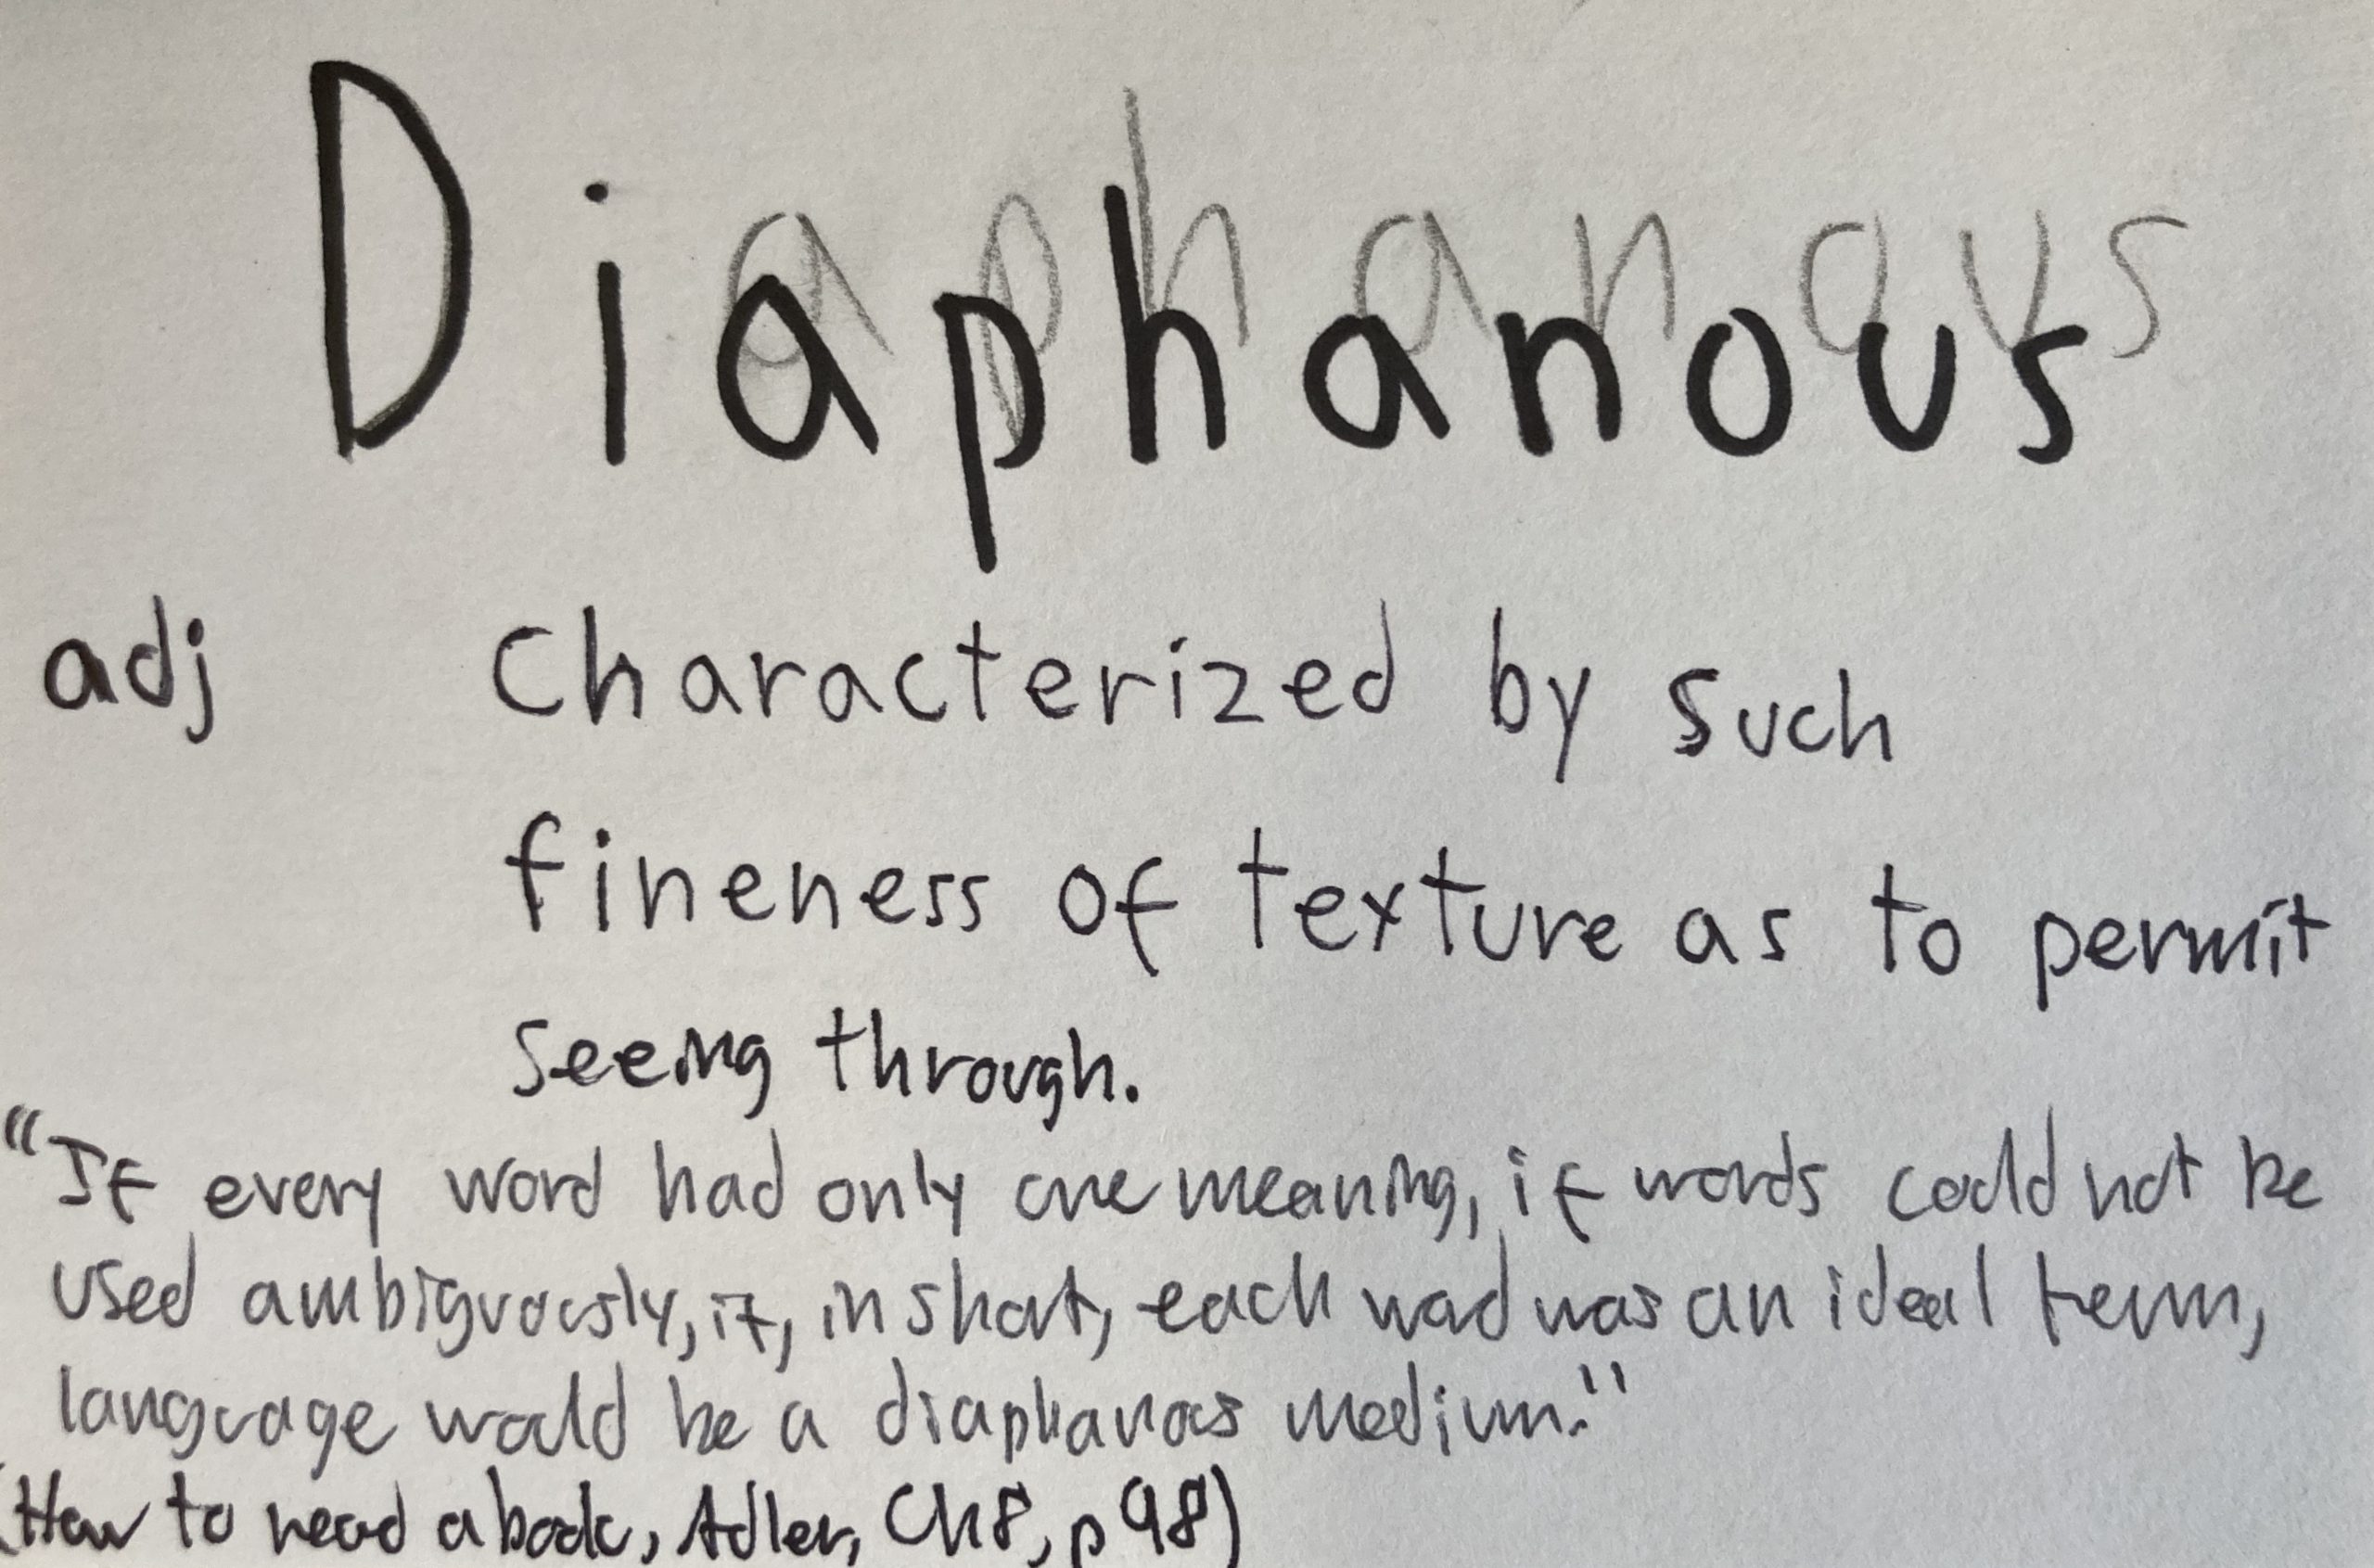 Diaphanous
adj characterized by such
fineness of texture as to permit
seeing through.
"If every word had only one meaning, if words could not be
used ambiguously, if, in short, each word was an ideal term,
language would be a diaphanous medium."
(How to read a book, Adler, Ch8, p 98)